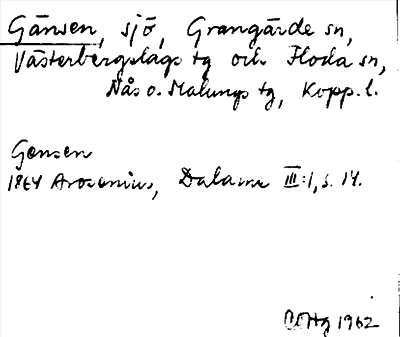 Gänsen, sjö, Grangärde sn,
Västerbergslags tg och Floda sn,
Nås o. Malungs tg, Kopp. l.
Gensen
1864 Arosenius, Dalarne III:1, s. 14.
1962